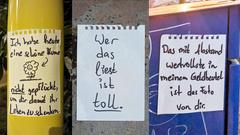 Ich habe heute
eine schöne Blume
nicht gepflückt,
um dir damit ihr
Leben zu schenken.
Wer
das
liest
ist
toll.
Das mit Abstand
wertvollste in
meinem Geldbeutel
ist das Foto
von dir.